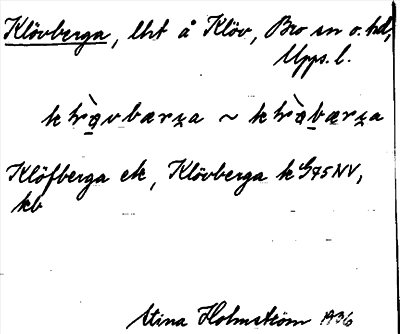 Klövberga, lht å Klöv, Bro sn o. hd,
Upps. l.
~
Klöfberga ek, Klövberga k G75NV,
kb
Stina Holmström 1936